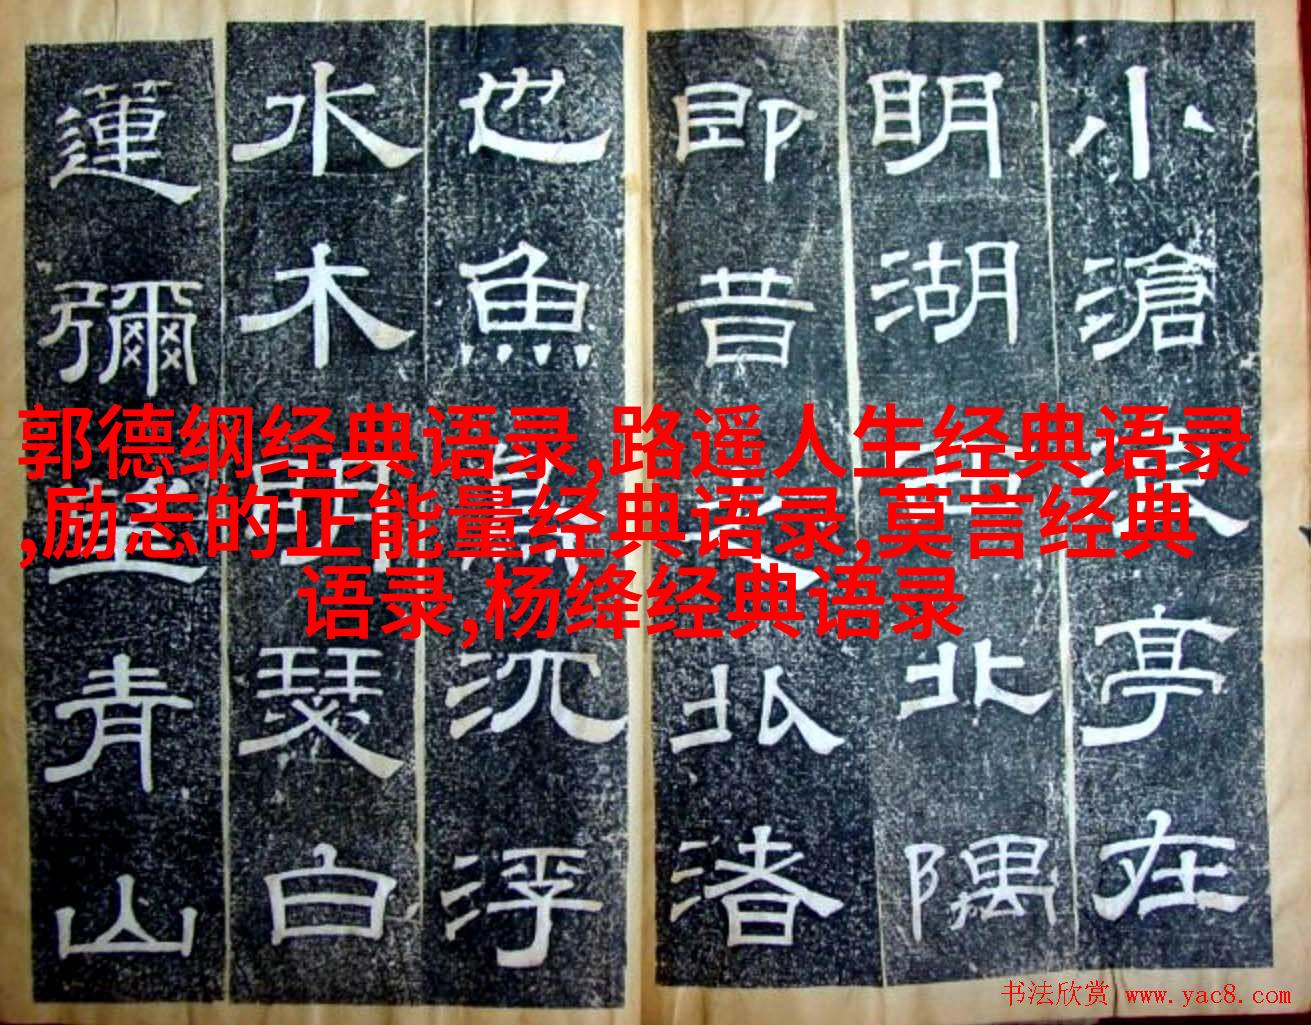 小滄亭在
明湖北隅
即昔北渚
也魚沉浮
水木瑟白
蓮彌青山
郭德纲经典语录,路遥人生经典语录
,励志的正能量经典语录,莫言经典
语录,杨绛经典语录
书法欣赏 www.yac8.com